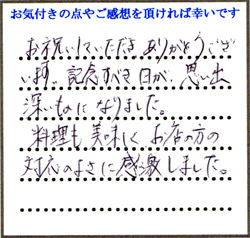 お気付きの点やご感想を頂ければ幸いです
お祝いしていただき ありがとうござい
ます。記念すべき日が、思い出
深いものになりました。
料理も美味しく お店の方の
対応のよさに感激しました。